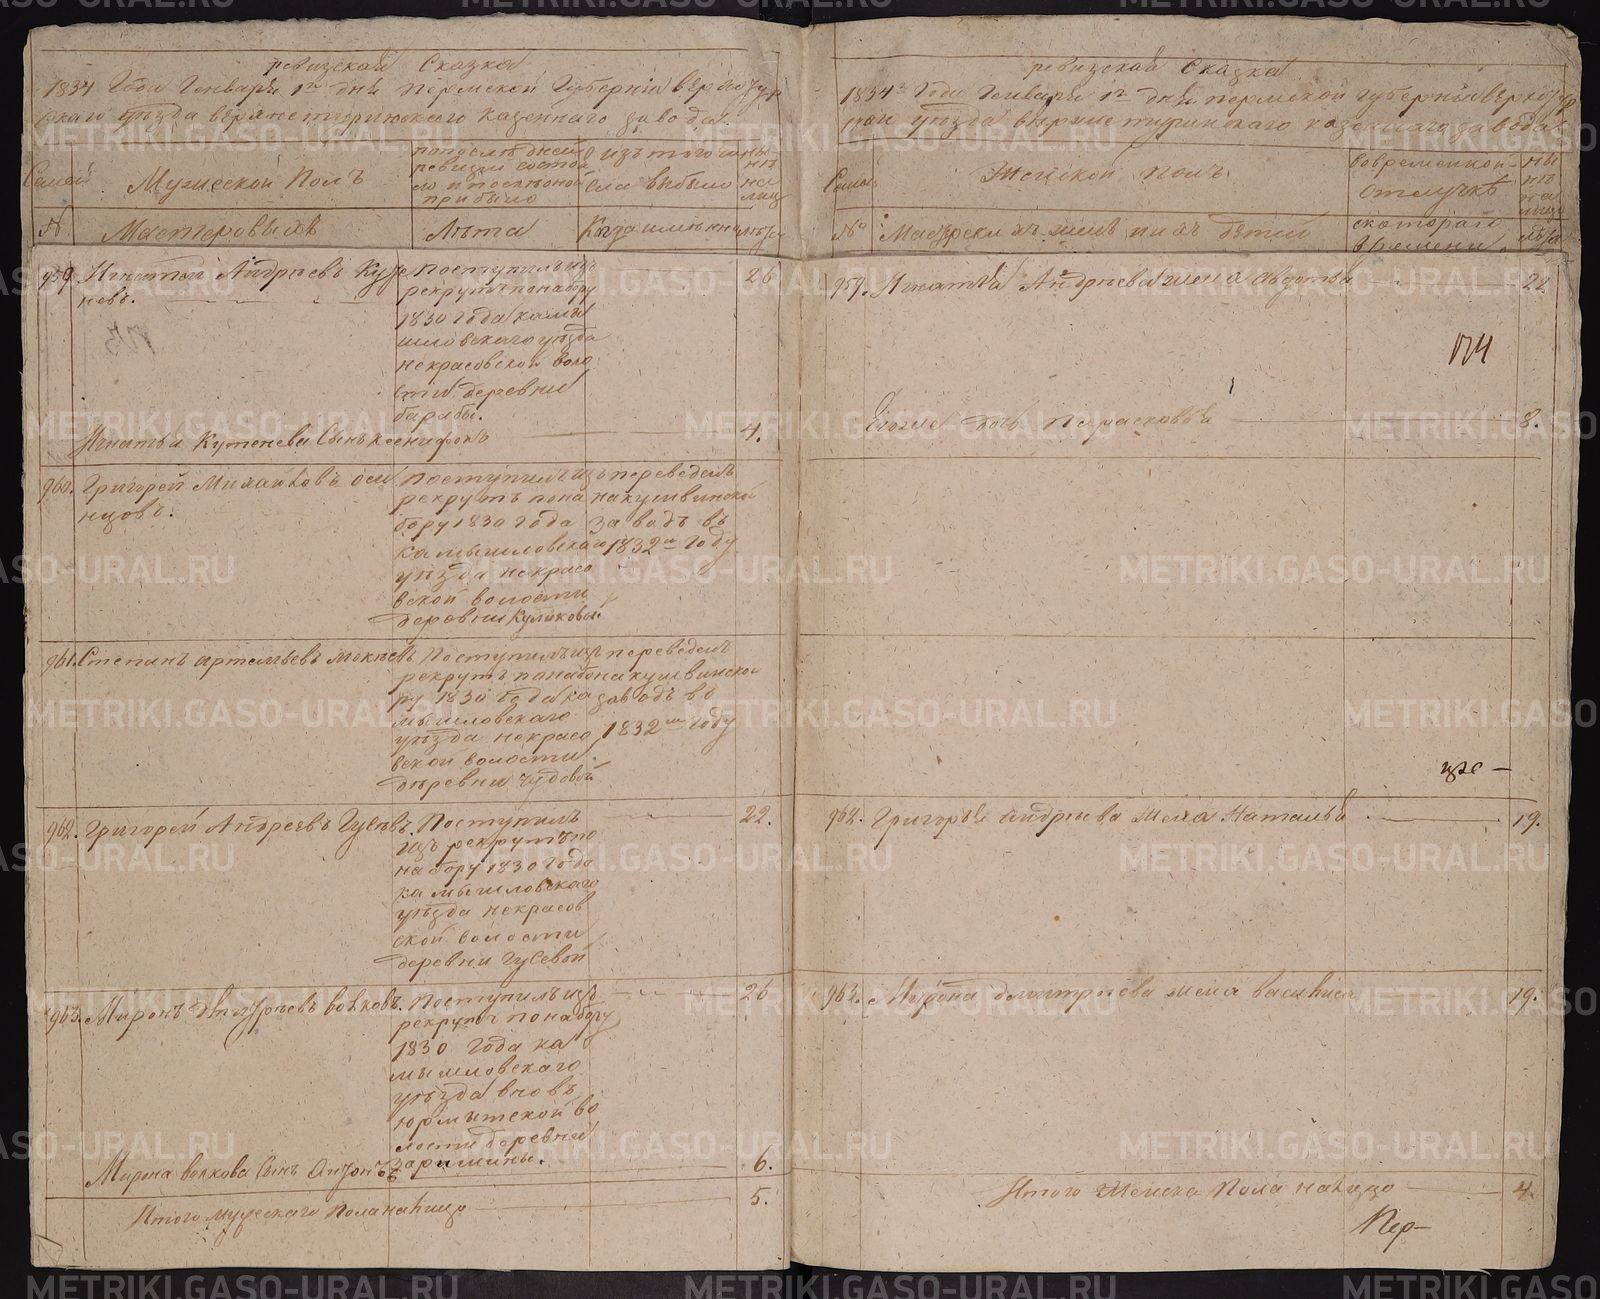 ревизская Сказка
1834 Года Генваря 1го дня Пермской Губерніи верхотур
скаго уѣзда верхнетуринскаго казеннаго завода
Семей
Мужеской Полъ
попослѣдней
ревизіи состоя
ло и послѣоной
прибыло
изъ того чи
сла выбыло
ны
нѣ
на
лиц
№
Мастеровыхъ
Лѣта
Когда имянно
лѣта
959. Игнатей Андрѣевъ Куте
невъ.
Поступилъ изъ
рекрутъ по набору
1830 года камы
шловскаго уѣзда
некрасовской воло
сти деревни
барабы.
26
Игнатья Кутенева Сынъ ксенифонъ
4.
960. Григорей Михайловъ оси
нцовъ.
Поступилъ изъ
рекрутъ по на
бору 1830 года
камышловскаго
уѣзда некрасо
вской волости
деревни Куликовы.
переведенъ
на кушвинской
заводъ въ
1832м году
961. Степанъ артемьевъ мокѣевъ
Поступилъ изъ
рекрутъ по набо
ру 1830 года ка
мышловскаго
уѣзда некрасо
вской волости
деревни Чудовой
переведенъ
на кушвинской
заводъ во
1832м году
962. Григорей Андреевъ Гусевъ.
Поступилъ
изъ рекрутъ по
набору 1830 года
камышловскаго
уѣзда некрасов
ской волости
деревни Гусевой
22.
963. Миронъ Дмитрѣевъ волковъ.
Поступилъ изъ
рекрутъ по набору
1830 года ка
мышловскаго
уѣзда вновь
юрмытской во
лости деревни
заримины.
26
Мирона волкова Сынъ Антонъ
6.
Итого мужескаго Пола налицо
5.
ревизская Сказка
1834го Года Генваря 1го дня пермской губерніи верхотур
скаго уѣзда верхнетуринскаго казеннаго завода
Семей
Женской полъ
вовременной
отлучкѣ
ны
нѣ
на
лицо
№
Мастерскихъ женъ и ихъ дѣтей
скотораго
времени
лѣта
959. Игнатья Андрѣева жена авдотья
22
174
Ихже дочь Парасковья
8.
962. Григорья андрѣева жена Наталья
19.
963. Мирона дмитрѣева жена василиса
19.
Итого Женска Пола налицо
4.